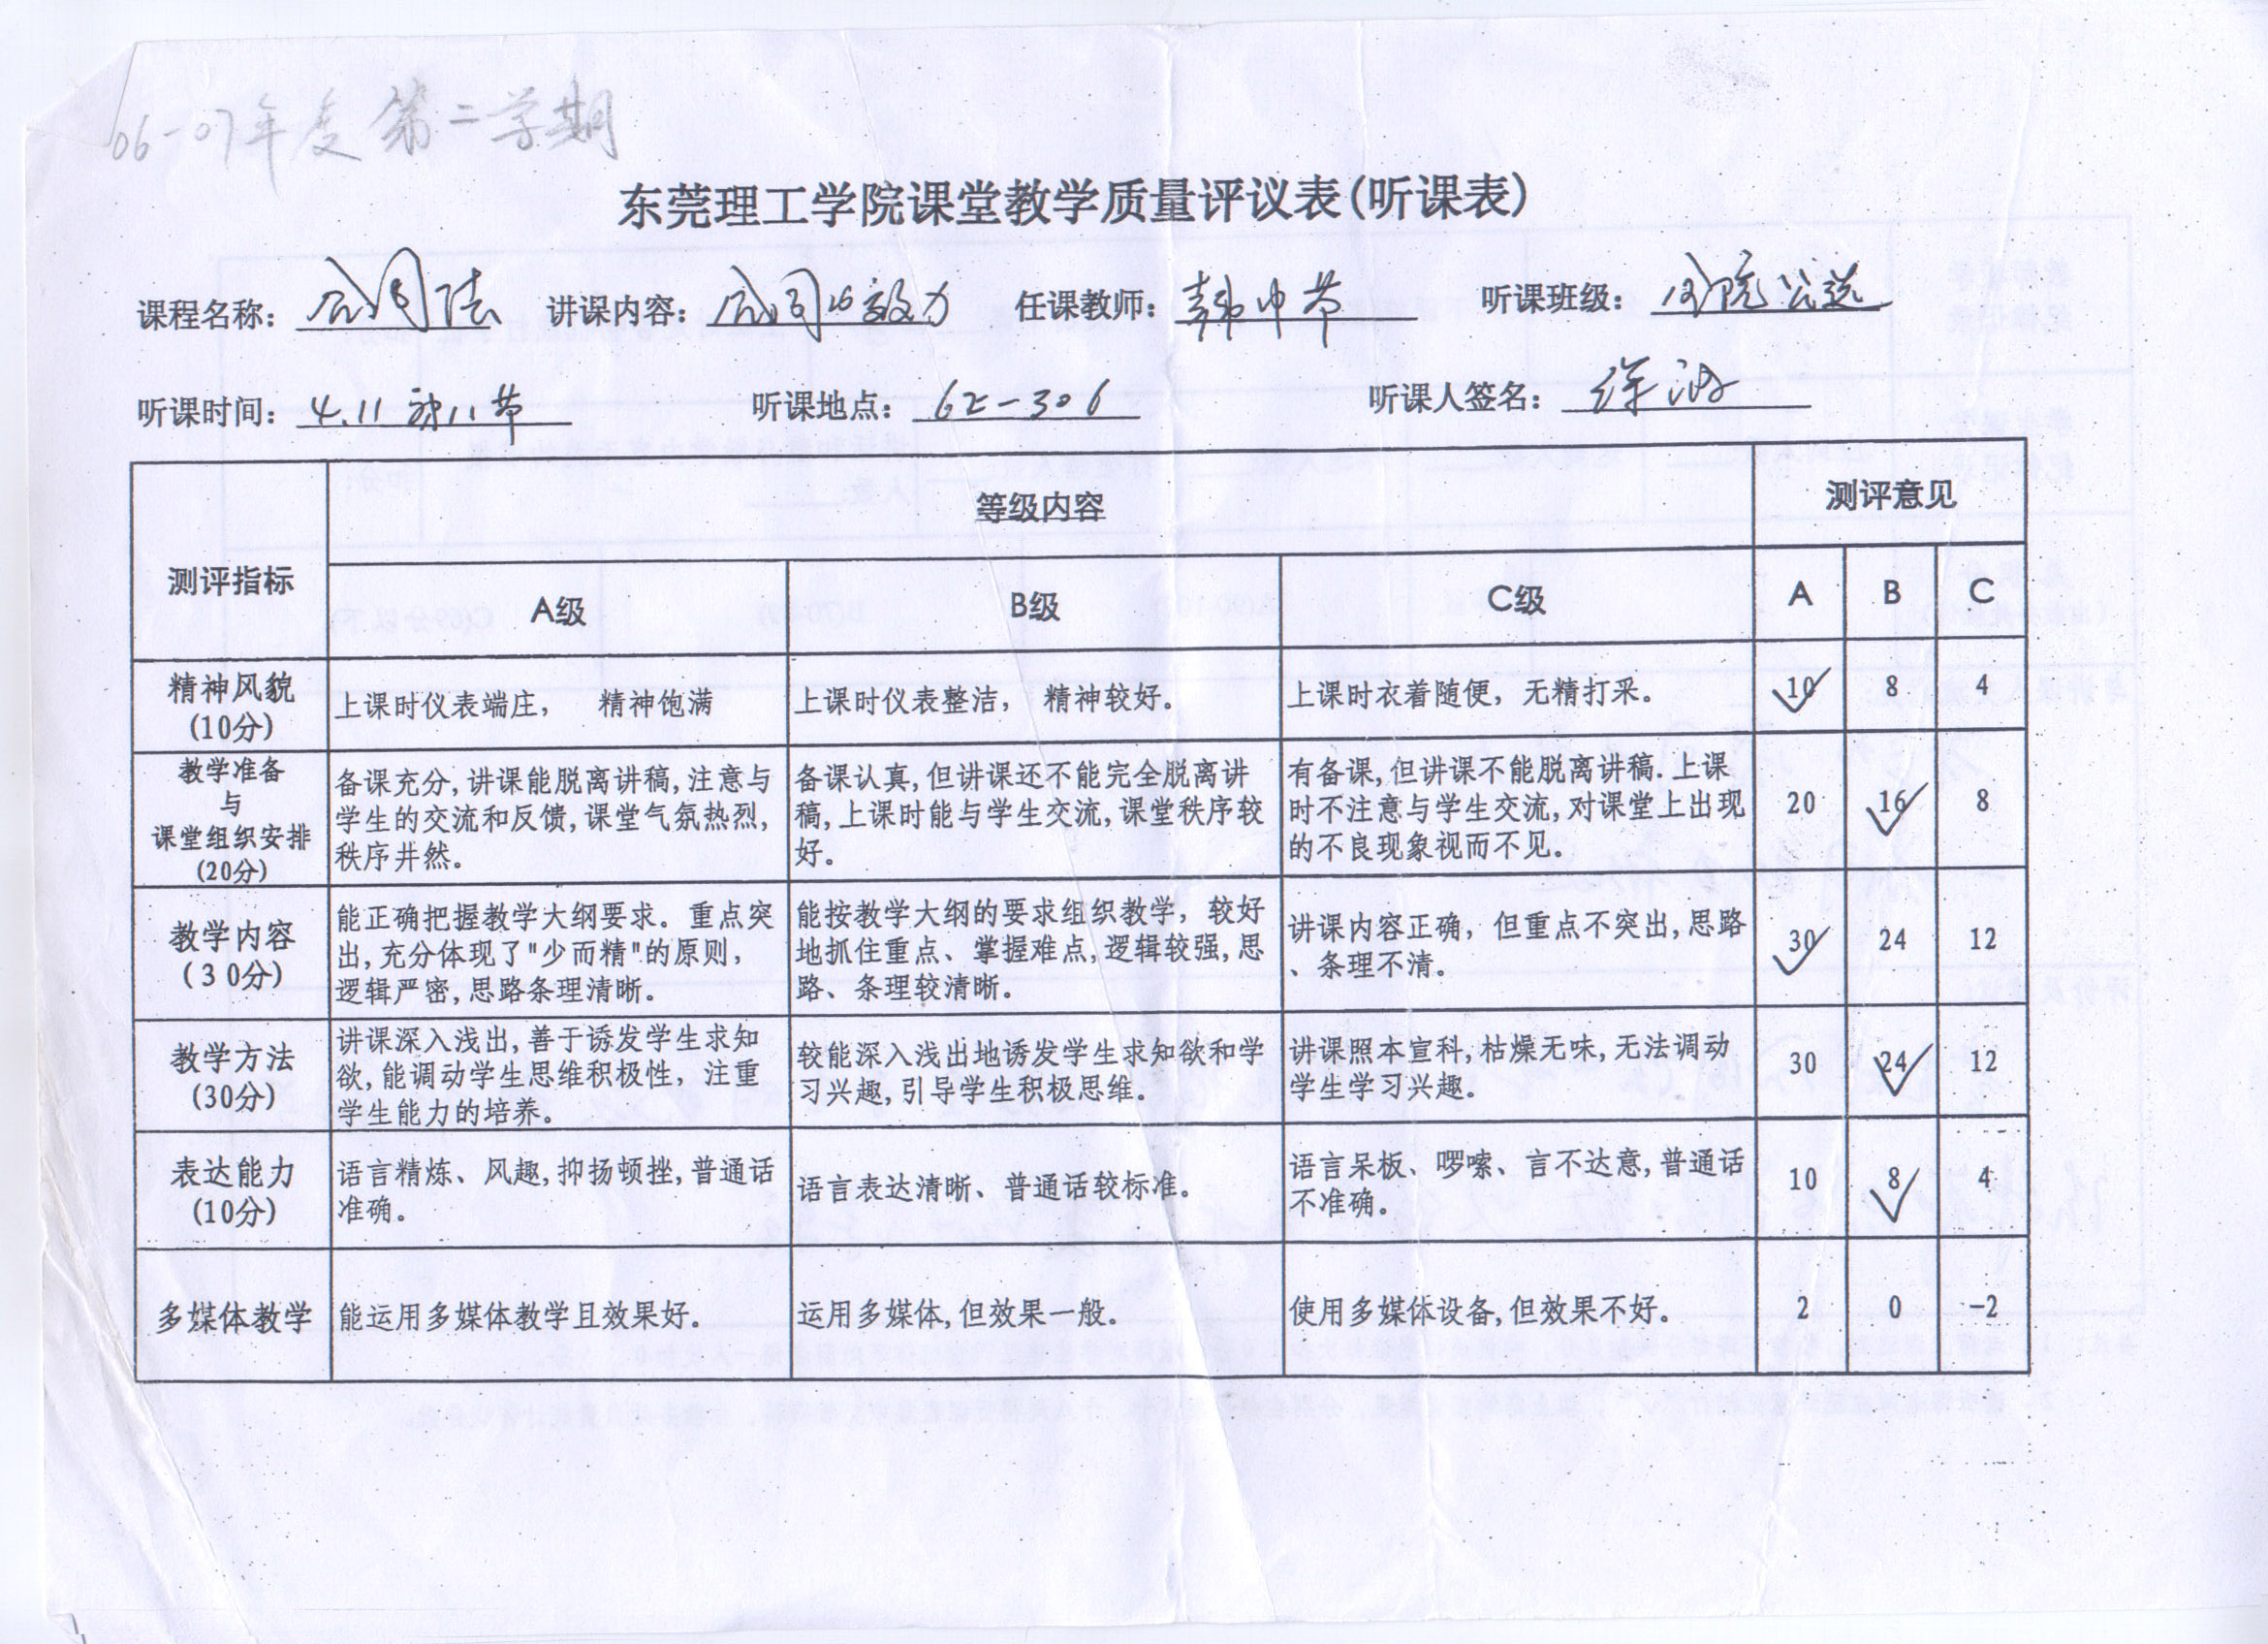 06-07年度第二学期
东莞理工学院课堂教学质量评议表(听课表)
课程名称: 合同法 讲课内容: 合同的效力 任课教师: 韩中节 听课班级: 全院公选
听课时间: 4.11 听课地点: 6E-306 听课人签名: 徐波
测评指标 等级内容 测评意见
A级 B级 C级 A B C
精神风貌
(10分)
上课时仪表端庄， 精神饱满
上课时仪表整洁， 精神较好。
上课时衣着随便，无精打采。
10 8 4
教学准备
与
课堂组织安排
(20分)
备课充分,讲课能脱离讲稿,注意与
学生的交流和反馈,课堂气氛热烈,
秩序井然。
备课认真,但讲课还不能完全脱离讲
稿,上课时能与学生交流,课堂秩序较
好。
有备课,但讲课不能脱离讲稿.上课
时不注意与学生交流,对课堂上出现
的不良现象视而不见。
20 16 8
教学内容
(30分)
能正确把握教学大纲要求。重点突
出,充分体现了"少而精"的原则，
逻辑严密,思路条理清晰。
能按教学大纲的要求组织教学，较好
地抓住重点、掌握难点,逻辑较强,思
路、条理较清晰。
讲课内容正确，但重点不突出,思路
、条理不清。
30 24 12
教学方法
(30分)
讲课深入浅出,善于诱发学生求知
欲,能调动学生思维积极性，注重
学生能力的培养。
较能深入浅出地诱发学生求知欲和学
习兴趣,引导学生积极思维。
讲课照本宣科,枯燥无味,无法调动
学生学习兴趣。
30 24 12
表达能力
(10分)
语言精炼、风趣,抑扬顿挫,普通话
准确。
语言表达清晰、普通话较标准。
语言呆板、啰嗦、言不达意,普通话
不准确。
10 8 4
多媒体教学 能运用多媒体教学且效果好。 运用多媒体,但效果一般。 使用多媒体设备,但效果不好。 2 0 -2